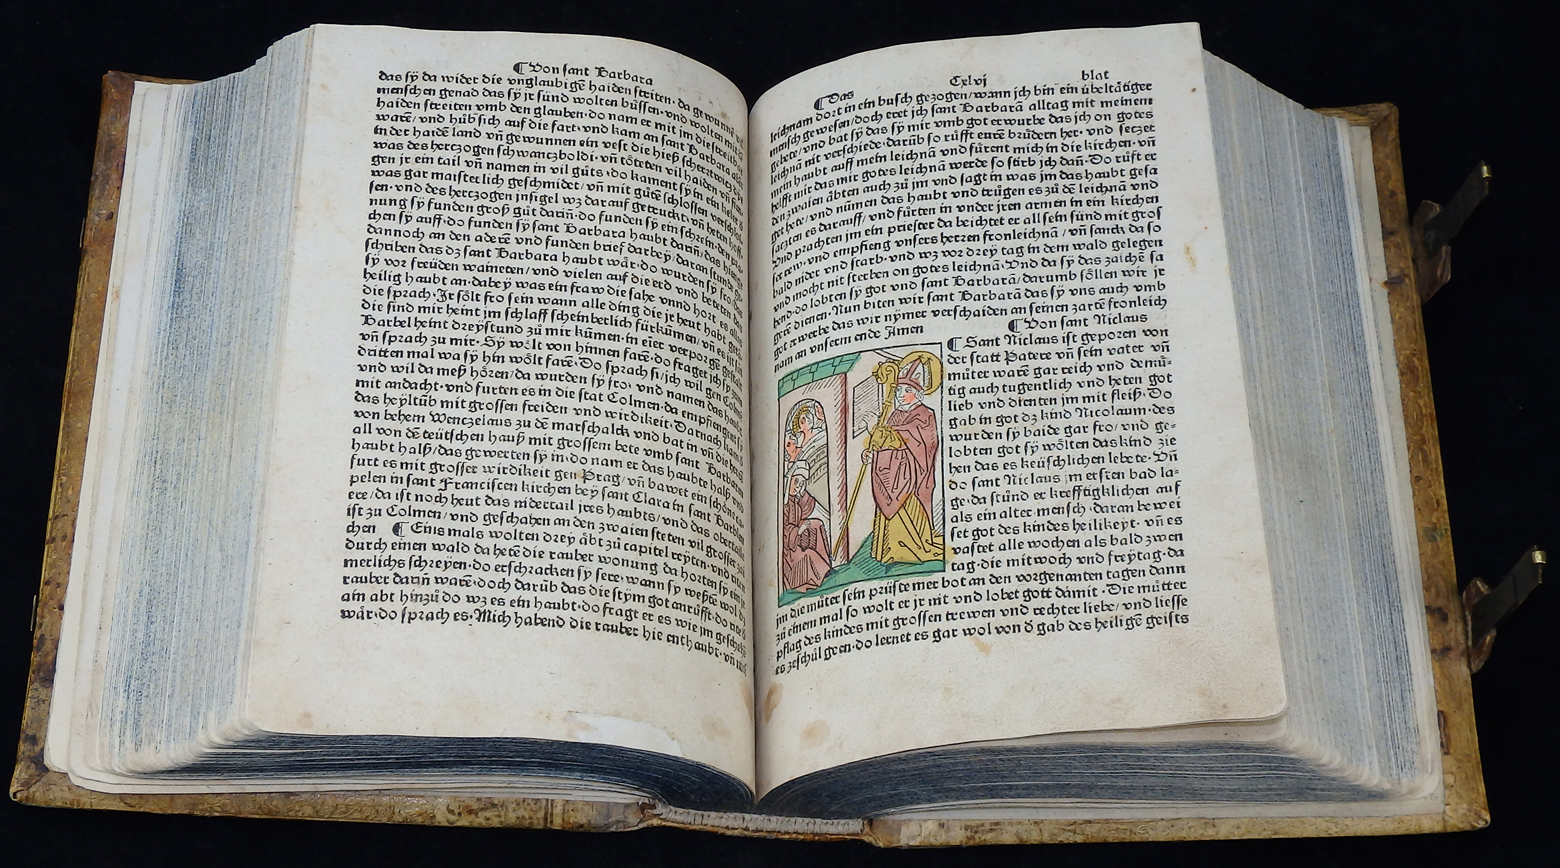 ¶ Von sant Barbara
das sÿ da wider die vnglaubigē haiden striten· da gewunnen
menschen genad das sÿ jr sünd wolten büssen· vnd wolten mit
haiden streiten vmb den glauben· do nam er mit jm die streÿt
warē/ vnd hübsich auf die fart· vnd kam an sant Barbara
in der haidē land vn̄ gewunnen ein vest die hieß
was des herczogen schwanczboldi· vn̄ töteten vil haiden vn̄
gen jr ein tail vn̄ namen in vil gůts· do kament sÿ in ein
was gar maisterlich geschmidet/ vn̄ mit gůtē schlossen
sen· vnd des herczogen insigel wz dar auf getruckt
nung sÿ funden groß gůt darin̄· do funden sÿ ein schrein·
chen sÿ auff· do funden sÿ sant Barbara haubt darin̄/
dannoch an den aderē vnd funden brief darbeÿ/ daran stunde
schriben das dz sant Barbara haubt wår· do wurden sÿ fro
sÿ vor freüden waineten/ vnd vielen auf die erd vnd beteten
heilig haubt an· dabeÿ was ein fraw die sahe vnnd hort
die sprach· Jr sölt fro sein wann alle ding die jr heut habt
die sind mir heint jm schlaff scheinberlich fürkūmen/ vn̄
Barbel heint dreÿstund zů mir kūmen· in einer verporgē
vn̄ sprach zu mir· Sÿ wölt von hinnen farē· do fraget ich sÿ
dritten mal wa sÿ hin wölt farē· Do sprach si/ ich wil gen
vnd wil da meß hören/ da wurden sÿ fro· vnd namen das
mit andacht· vnd furten es in die stat Colmen· da empfiengent
das heÿltūb mit grossen freiden vnd wirdikeit· Darnach kam
von behem Wenczelaus zu dē marschalck vnd bat in vn̄ die
all von dē teütschen hauß mit grossem bete vmb sant Barbaren
haubt halß/ das gewerten sÿ in· do nam er das haubte halß vnd
furt es mit grosser wirdikeit gen Prag/ vn̄ bawet ein schöne
pelen in sant Francisten kirchen beÿ sant Clara in sant Barbaren
ere/ da ist noch heut das nidertail jres haubts/ vnd das obertaile
ist zu Colmen/ vnd geschahen an den zwaien steten vil grosser
chen ¶ Eins mals wolten dreÿ åbt zů capitel reÿten· vnd
durch einen wald da hetē die rauber wonung da horten sÿ ein
merlichs schreÿen· do erschracken sÿ sere· wann sÿ weßtē wol
rauber darin̄ warē· doch darüb das die stÿm got anrüfft· do
ain abt hinzů do wz es ein haubt· do fragt er es wie jm geschehē
wår· do sprach es· Mich habend die rauber hie enthaubt· vn̄
¶ Das Cxlvj blat
leichnam dort in ein busch gezogen/ wann ich bin ein übeltåtiger
mensch gewesen/ doch eret ich sant Barbarā alltag mit meinem
gebete/ vnd bat sÿ das sÿ mir vmb got erwurbe das ich on gotes
leichnā nit verschiede· darüb so rüfft eurē brüdern her· vnd seczet
mein haubt auff mein leichnā vnd fürent mich in die kirchen· vn̄
helfft mir das mir gotes leichnā werde so stirb ich dan̄· Do rüft er
den zwaien åbten auch zů jm vnd sagt in was jm das haubt gesa
get hete/ vnd nūmen das haubt vnd trügen es zů dē leichnā vnd
saczten es darauff/ vnd fürten in vnder jren armen in ein kirchen
vnd prachten jm ein priester da beichtet er all sein sünd mit gros
ser rew· vnd empfieng vnsers herren fronleichnā/ vn̄ sanck da so
bald nider vnd starb· vnd wz vor dreÿ tag in dem wald gelegen
vnd mocht nit sterben on gotes leichnā· Vnd da sÿ das zaichē sa
hend· do lobten sÿ got vnd sant Barbarā/ darumb söllen wir jr
gerē dienen· Nun biten wir sant Barbarā das sÿ vns auch vmb
got erwerbe das wir nÿmer verschaiden an seinen zartē fronleich
nam an vnserm ende Amen
¶ Von sant Niclaus
¶ Sant Niclaus ist geporen von
der statt Patere vn̄ sein vater vn̄
můter warē gar reich vnd demü-
tig auch tugentlich vnd heten got
lieb vnd dienten jm mit fleiß· Do
gab in got dz kind Nicolaum· des
wurden sÿ baide gar fro/ vnd ge-
lobten got sÿ wölten das kind zie
hen das es keüschlichen lebete· Vn̄
do sant Niclaus jm ersten bad la-
ge· da stůnd er krefftigklichen auf
als ein alter mensch· daran bewei
set got des kindes heilikeyt· vn̄ es
vastet alle wochen als bald zwen
tag· die mitwoch vnd freÿtag· da
jm die můter sein prüste mer bot an den vorgenanten tagen dann
zů einem mal so wolt er jr nit vnd lobet gott damit· Die můtter
pflag des kindes mit grossen trewen vnd rechter liebe/ vnd liesse
es zeschůl geen· do lernet es gar wol von d̄ gab des heiligē geists